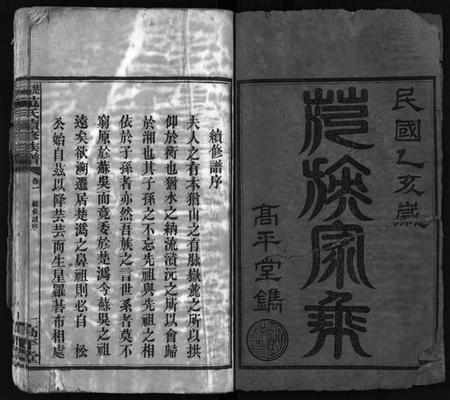 民國乙亥歲
范族家乘
高平堂鐫
續修譜序
夫人之有本猶山之有脉嶽麓之所以拱
仰於衡也猶水之納流漬沅之所以會歸
於湘也其子孫之不忘先祖與先祖之相
依於子孫者亦然吾族之言世系者莫不
窮原於蘇吳而竟委於楚潙今蘇吳之源
遠矣欲溯遷居楚潙之鼻祖則必自 松
公始自茲以降芸芸而生星羅碁布相處
氏續修族譜
卷一
續修譜序
高平堂